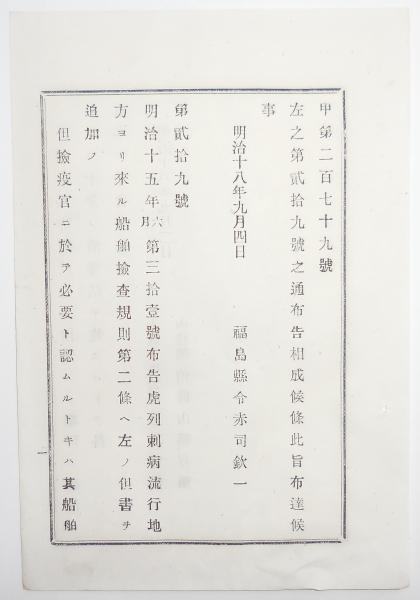 甲第二百七十九號
左之第貳拾九號之通布告相成候條此旨布達候
事
明治十八年九月四日　福島縣令赤司欽一
第貳拾九號
明治十五年六月第三拾壹號布告虎列剌病流行地
方ヨリ來ル船舶撿査規則第二條ヘ左ノ但書ヲ
追加ス
但撿疫官ニ於テ必要ト認ムルトキハ其船舶
一